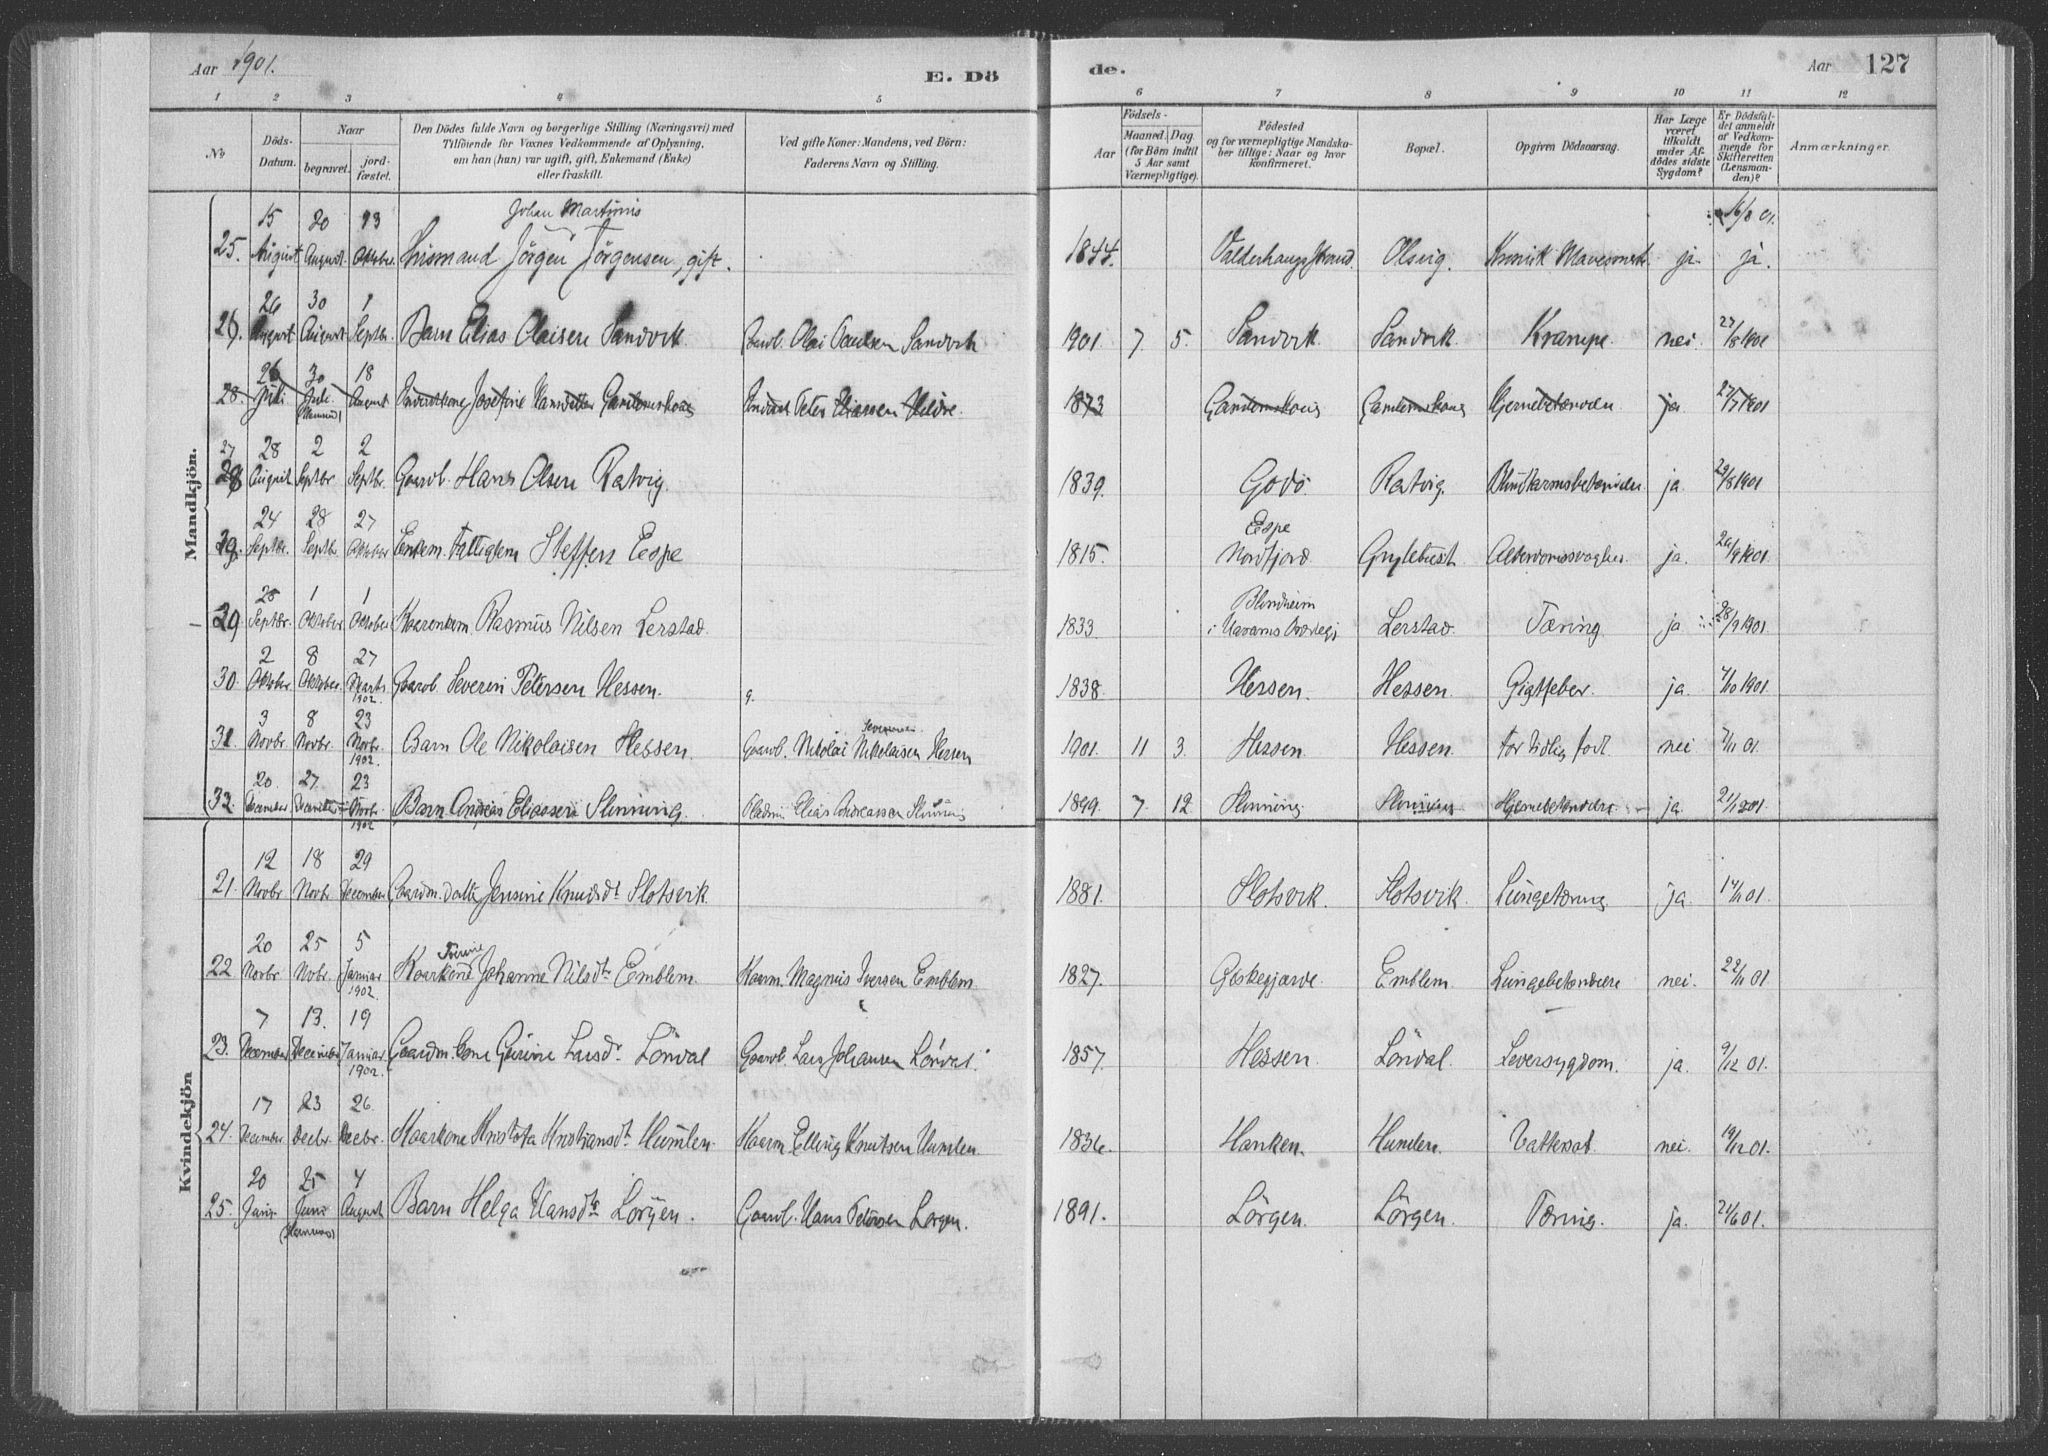 Aar 1901.
E. Dö
de.
Aar 127
1 2 3 4 5 6 7 8 9 10 11 12
No
Döds-Datum.
Naar
begravet.
jord-fæstet.
Den Dödes fulde Navn og borgerlige Stilling (Næringsvei) med
Tilföiende for Voxnes Vedkommende af Oplysning,
om han (hun) var ugift, gift, Enkemand (Enke)
eller fraskilt.
Ved gifte Koner: Mandens, ved Börn:
Faderens Navn og Stilling.
Födsels-
Aar
Maaned. Dag.
(for Börn indtil
5 Aar samt
Værnepligtige).
Födested
og for værnepligtige Mandskaber tillige: Naar og hvor
konfirmeret.
Bopæl.
Opgiven Dödsaarsag.
Har Læge
været
tilkaldt
under Afdödes sidste
Sygdom?
Er Dödsfaldet anmeldt
af Vedkommende for
Skifteretten
(Lensmanden)?
Anmærkninger.
Mandkjön.
Johan Martinus
25. 15 August 20 August 23 Oktober. Husmand Jörgen Jörgensen, gift. 1844. Valderhaugstrand. Olsvig. Kronisk ja. 16/8 01. ja.
26. 26 August 30 August 1 Septbr. Barn Elias Olaisen Sandvik Gaarb. Olai Paulsen Sandvik 1901 7. 5. Sandvik. Sandvik. Krampe. nei. 27/8 1901
28. 26 Juli 30 Juli 18 August Indrstkone Josefine Hansdatter Peter Eliassen Hildre. 1873 Hjernebetændelse ja 27/7 1901
27 28 August 2 Septbr. 2 Septbr. Gaarb. Hans Olsen Ratvig. 1839. Godö. Ratvig. Blindtarmsbetændelse ja. 29/8 1901
28. 24 Septbr. 28 Septbr. 27 Oktober Enkem. Fattiglem Steffen Espe 1815. Eespe Nordfjord Gryteböst. Alderdomssvaghed. ja. 26/9 1901.
29. 28 Septbr. 1 Oktober 1 Oktober Kaarenkem. Rasmus Nilsen Lerstad. 1833. Blindheim i Harams Præstegj. Lerstad. Tæring ja 28/9 1901.
30. 2 Oktober 8 Oktober. 27 Marts 1902. Gaarb. Severin Petersen Hessen. g. 1838. Hessen. Hessen. Gigtfeber. ja. 4/10 1901.
31. 3 Novbr. 8 Novbr. 23 Novbr. 1902. Barn Ole Nikolaisen Hessen. Gaarb. Nikolai Nikolaisen Hessen 1901. 11 3. Hessen. Hessen. For tidlig födt. nei 7/11 01.
32. 20. December 27 December 23 Novbr. 1902 Barn Andreas Eliassen Slinning. Elias Andreassen Slinning 1899 7. 12. Slinning. Slinning Hjernebetændelse ja. 21/12 01.
Kvindekjön
21. 12 Novbr. 18 Novbr. 29 December Gaardm. datter Jensine Knudsdt. Slotsvik. 1881. Slotsvik. Slotsvik. Lungetæring ja. 14/11 01.
22 20 Novbr. 25 Nobr. 5 Januar 1902. Kaarkone Johanne Nilsdtr. Emblem. Kaarm. Magnus Iversen Emblem. 1827. Giskegjærde. Emblem. Lungebetændelse nei. 22/11 01.
23. 7 December 13. December 19 Januar 1902. Gaardm. kone Gurine Larsdr. Lönval Gaarb. Lars Johansen Lönval. 1857. Hessen. Lönval. Leversygdom. ja. 9/12 01.
24. 17 December 23 Decbr. 26. Decbr. Kaarkone Kristofa Kristiansdt. Humlen. Kaarm. Elling Knutsen Humlen. 1836. Hanken. Humlen. Vattersot. nei. 19/12 01.
25. 20 Juni 25 Juni 4 August Barn Helga Hansdtr Lörgen. Gaarb. Hans Petersen Lörgen. 1891. Lörgen. Lörgen. Tæring. ja. 21/6 01.